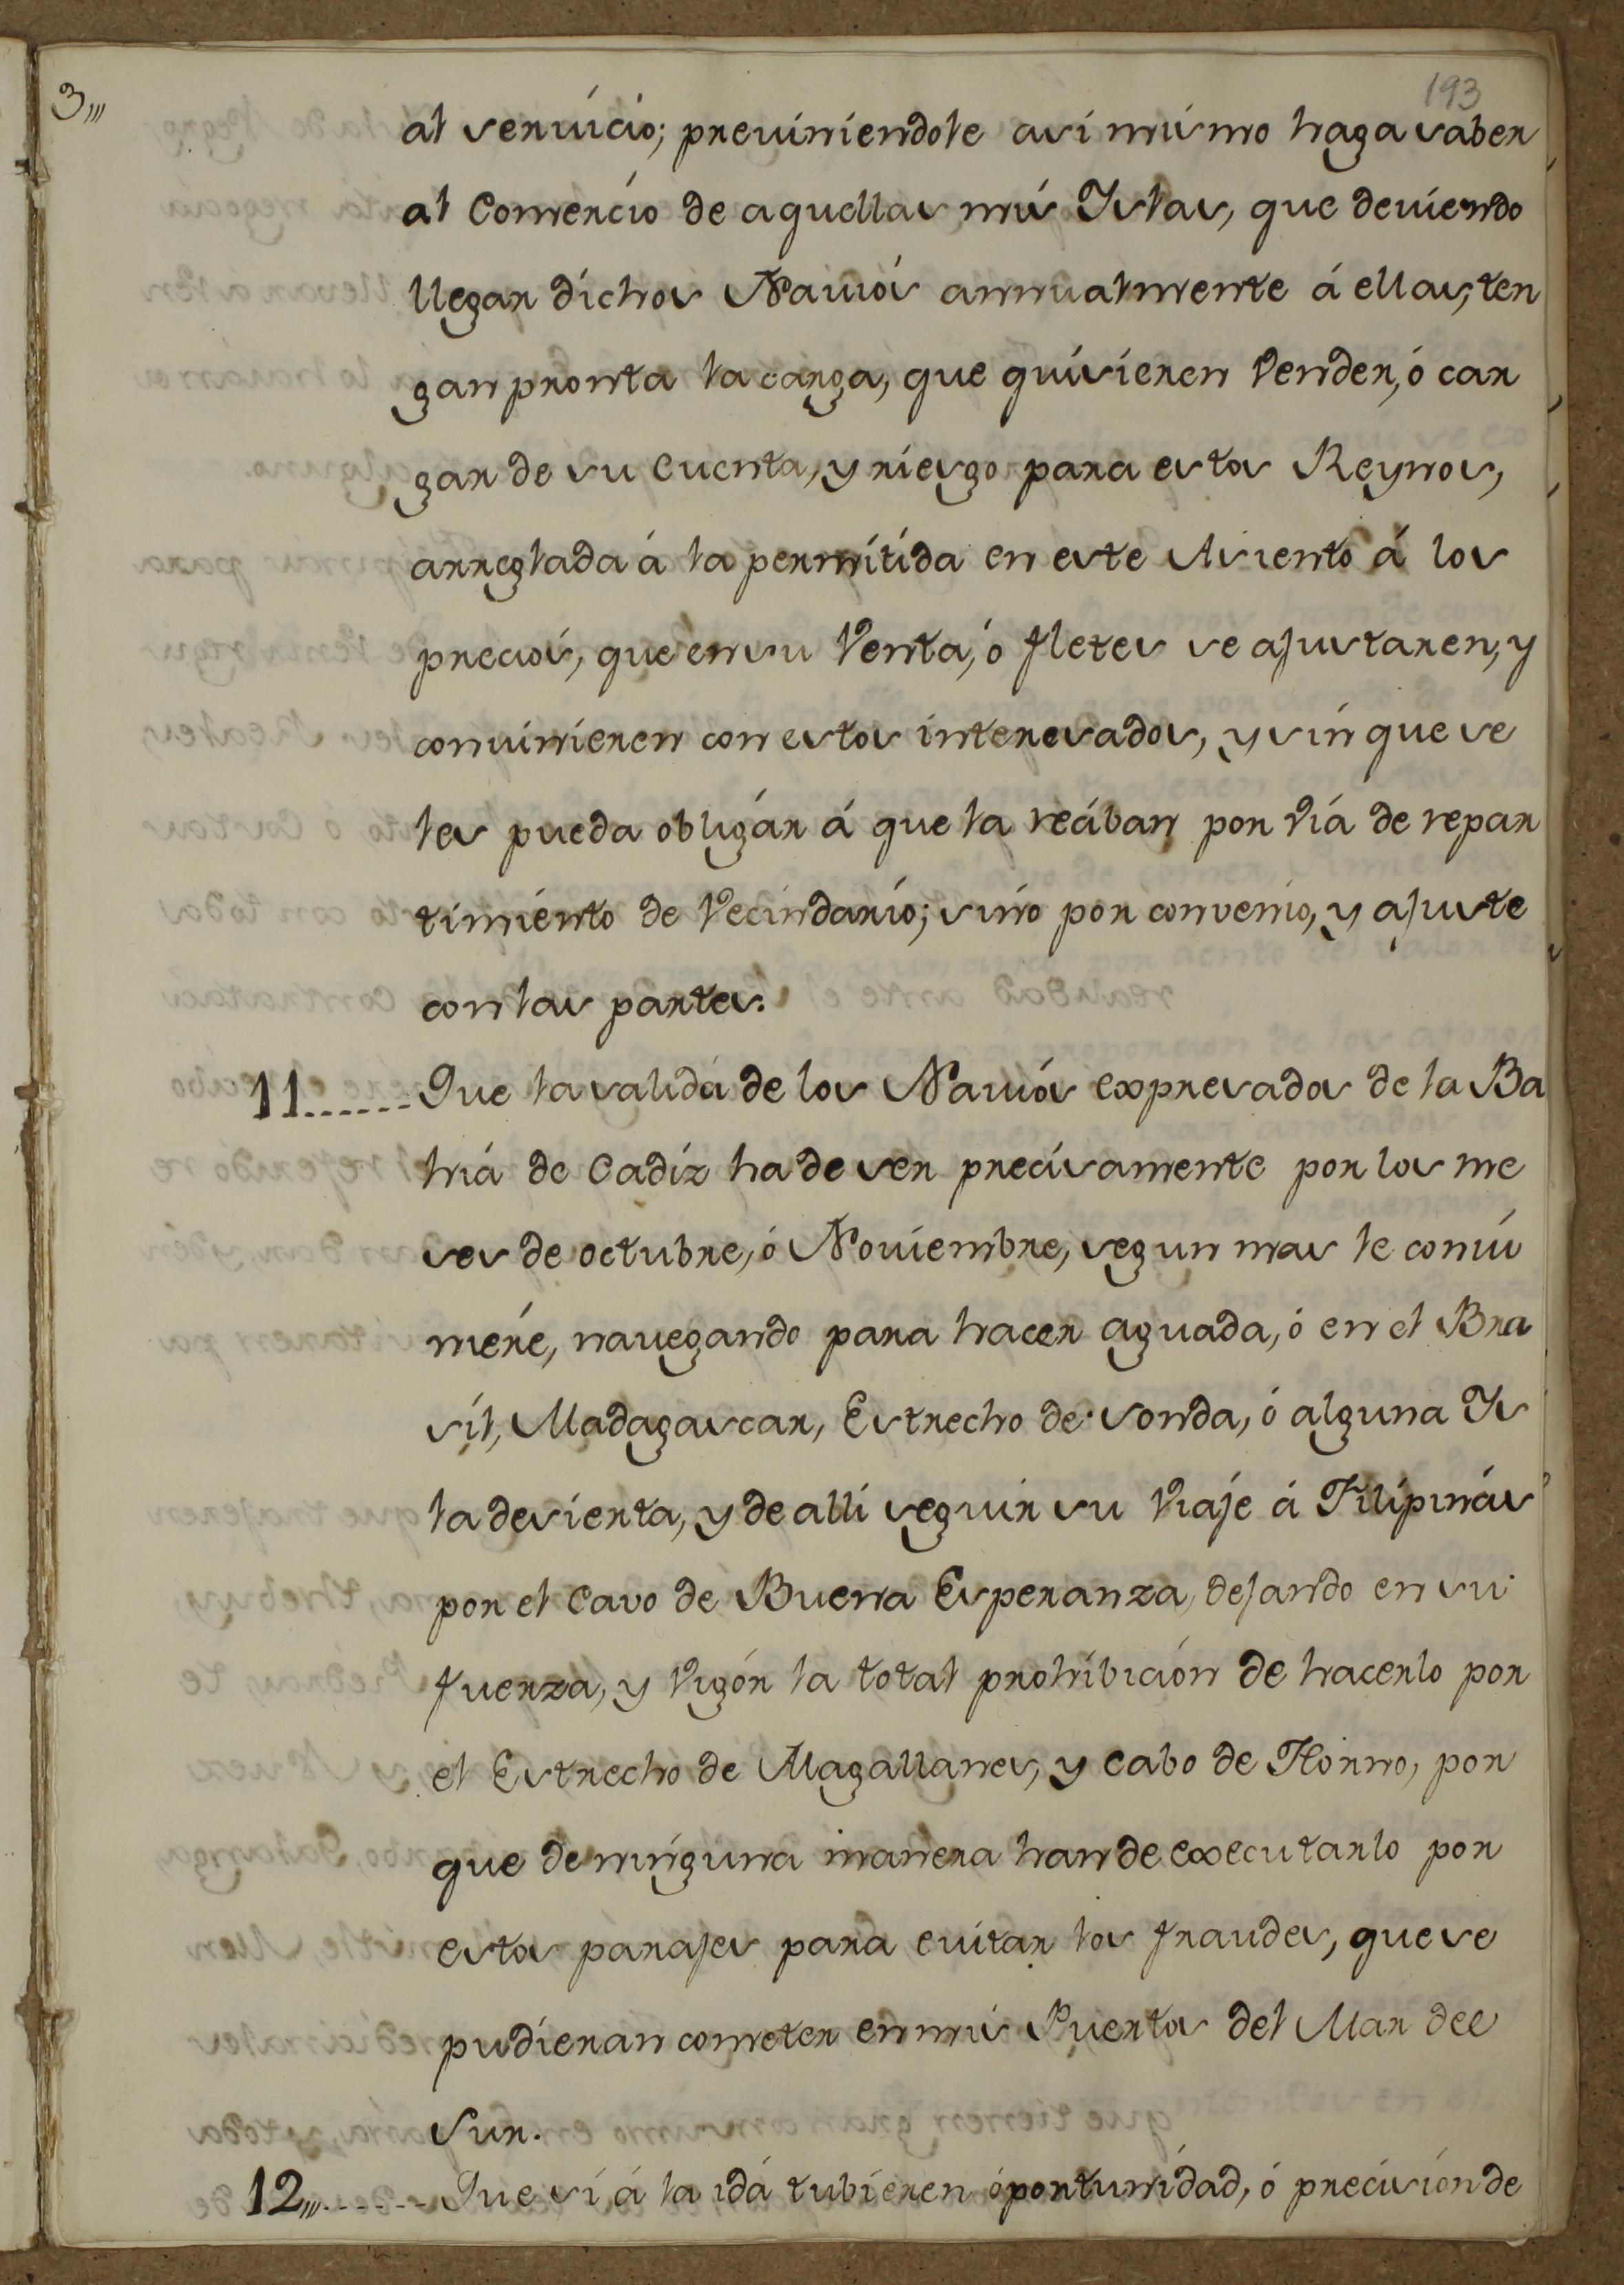 193
3,,,
al servicio; previniendole asi mismo haga saber
al Comercio de aquellas mis Islas, que deviendo
llegar dichos Navios annualmente á ellas, ten
gan pronta la carga, que quisieren Vender, ó car
gar de su Cuenta, y riesgo para estos Reynos,
arreglada á la permitida en este Asiento á los
precios, que en su Venta, ó fletes se ajustaren, y
convinieren con estos interesados, y sin que se
les pueda obligár á que la recíban por viá de repar
timiento de Vecindario; sino por convenio, y ajuste
con las partes.
11...... Que la salida de los Navios expresados de la Ba
hiá de Cadiz ha de ser precisamente por los me
ses de octubre, ó Noviembre, segun mas le comvi
niére, navegando para hacer aguada, ó en el Bra
síl, Madagascar, Estrecho de Sonda, ó alguna Is
la desierta, y de alli seguir su Viaje á Filipinás
por el Cavo de Buena Esperanza, dejando en su
fuerza, y Vigór la total prohibición de hacerlo por
el Estrecho de Magallanes, y Cabo de Horno, por
que de ninguna manera han de executarlo por
estos parajes para evitar los fraudes, que se
pudieran cometer en mis Puertos del Mar del
Sur.
12,,,...... Que si á la idá tubieren óportunidad, ó precisión de